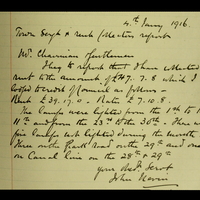 4th Jany 1916.
Town Sergt & Rent Collectors report
Mr. Chairman Gentlemen
I beg to report that I have collected
rent to the amount of £47. 7. 8 which I
lodged to credit of Council as follows -
Rent £39. 17. 0 - Rates £7. 10. 8.
The lamps were lighted from the 1st to
11th and from the 23rd to the 30th - There were
five lamps not lighted during the month
three on the road on the 29th and one
on Canal line on the 28th & 29th
Your Obdt Servt
John Kevin